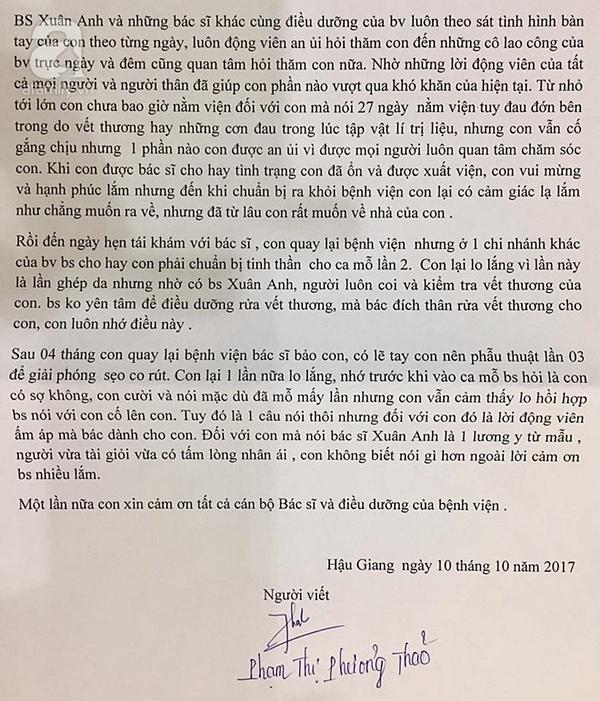 BS Xuân Anh và những bác sĩ khác cùng điều dưỡng của bv luôn theo sát tình hình bàn
tay của con theo từng ngày, luôn động viên an ủi hỏi thăm con đến những cô lao công của
bv trực ngày và đêm cũng quan tâm hỏi thăm con nữa. Nhờ những lời động viên của tất
cả mọi người và người thân đã giúp con phần nào vượt qua khó khăn của hiện tại. Từ nhỏ
tới lớn con chưa bao giờ nằm viện đối với con mà nói 27 ngày nằm viện tuy đau đớn bên
trong do vết thương hay những cơn đau trong lúc tập vật lí trị liệu, nhưng con vẫn cố
gắng chịu nhưng 1 phần nào con được an ủi vì được mọi người luôn quan tâm chăm sóc
con. Khi con được bác sĩ cho hay tình trạng con đã ổn và được xuất viện, con vui mừng
và hạnh phúc lắm nhưng đến khi chuẩn bị ra khỏi bệnh viện con lại có cảm giác lạ lắm
như chẳng muốn ra về, nhưng đã từ lâu con rất muốn về nhà của con .
Rồi đến ngày hẹn tái khám với bác sĩ , con quay lại bệnh viện nhưng ở 1 chi nhánh khác
của bv bs cho hay con phải chuẩn bị tinh thần cho ca mỗ lần 2. Con lại lo lắng vì lần này
là lần ghép da nhưng nhờ có bs Xuân Anh, người luôn coi và kiểm tra vết thương của
con. bs ko yên tâm để điều dưỡng rửa vết thương, mà bác đích thân rửa vết thương cho
con, con luôn nhớ điều này .
Sau 04 tháng con quay lại bệnh viện bác sĩ bảo con, có lẽ tay con nên phẫu thuật lần 03
để giải phóng sẹo co rút. Con lại 1 lần nữa lo lắng, nhớ trước khi vào ca mỗ bs hỏi là con
có sợ không, con cười và nói mặc dù đã mỗ mấy lần nhưng con vẫn cảm thấy lo hồi hợp
bs nói với con cố lên con. Tuy đó là 1 câu nói thôi nhưng đối với con đó là lời động viên
ấm áp mà bác dành cho con. Đối với con mà nói bác sĩ Xuân Anh là 1 lương y từ mẫu ,
người vừa tài giỏi vừa có tấm lòng nhân ái , con không biết nói gì hơn ngoài lời cảm ơn
bs nhiều lắm.
Một lần nữa con xin cảm ơn tất cả cán bộ Bác sĩ và điều dưỡng của bệnh viện .
Hậu Giang ngày 10 tháng 10 năm 2017
Người viết
Phạm Thị Phương Thảo